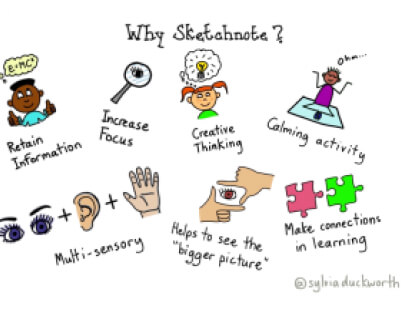 Why Sketchnote?
E=MC²
Ohm...
Retain
Information
Increase
Focus
Creative
Thinking
Calming activity
+
+
Multi-sensory
Helps to see the
"bigger picture"
Make connections
in learning
@sylviaduckworth